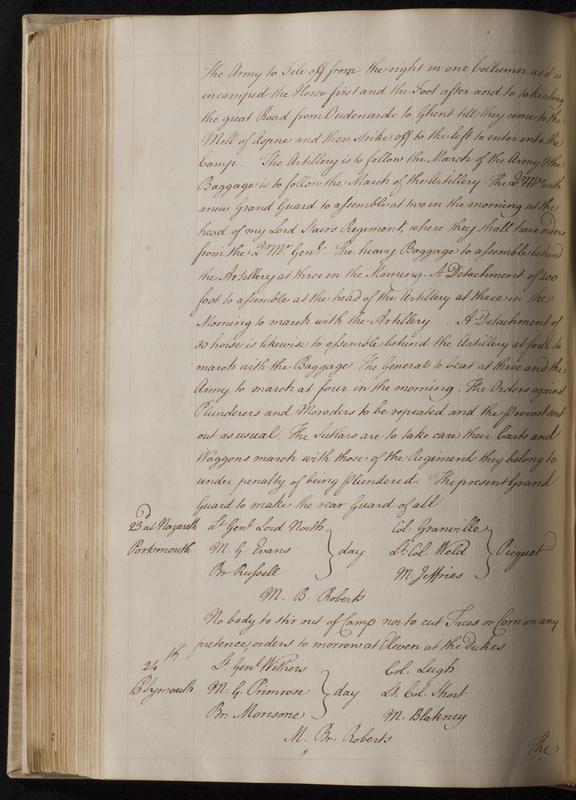 The Army to File off from the right in one Collumn as it is
encamped the Horse first and the Foot after and to take along
the great Road from Oudenarde to Ghent till they come to the
Mill of Aspne and then strike off to the left to enter into the
Camp. The Artillery is to follow the March of the Army & the
Baggage is to follow the March of the Artillery. The Qr Mrs with
a new Grand Guard to assemble at two in the morning at the
head of my Lord Stairs Regiment, where they shall have orders
from the Qr Mr Genl. The heavy Baggage to assemble behind
the Artillery at three in the Morning. A Detachment of 200
foot to assemble at the head of the Artillery at three in the
Morning to march with the Artillery. A Detachment of
30 horse is likewise to assemble behind the Artillery at four to
march with the Baggage. The General to beat at three and the
Army to march at four in the morning. The Orders against
Plunderers and Moroders to be repeated and the provost sent
out as usual. The Sutlars are to take care their Carts and
Waggons march with those of the Regiments they belong to
under penalty of being plundered. The present Grand
Guard to make the rear Guard of all
23 at Nazareth Lt Genl Lord North Col: Granville
Portsmouth M. G. Evans day Lt: Col. Weld Picquet
Br Russell M. Jeffries
M. B. Roberts
No body to stir out of Camp nor to cut Trees or Corn on any
pretence, orders to morrow at Eleven at the Dukes
24th Lt Genl Withers Col. Leigh
Plymouth M: G. Primrose day Lt. Col. Short
Br: Morisone M: Blakney
M. Br. Roberts
The